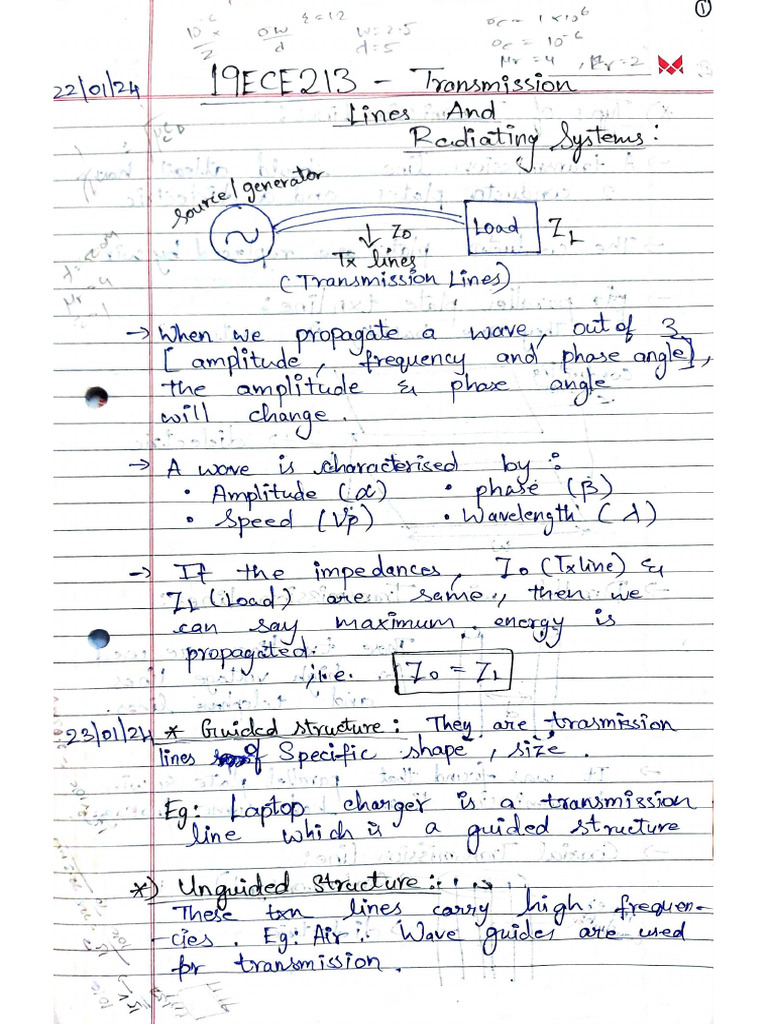 ①
10⁻⁶ × ow ε=12 w=2.5 σc = 1×10⁶
2 d d=5 σc = 10⁻⁶
μr = 4 , μr = 2
22/01/24 19ECE213 - Transmission
Lines And
Radiating Systems:
source/generator
Load ZL
Z0
Tx lines
(Transmission Lines)
→ When we propagate a wave, out of 3
[amplitude, frequency and phase angle],
the amplitude & phase angle
will change.
→ A wave is characterised by:
• Amplitude (α) • phase (β)
• Speed (Vp) • Wavelength (λ)
→ If the impedances, Z0 (Tx line) &
ZL (Load) are same, then we
can say maximum energy is
propagated.
i.e. Z0 = ZL
23/01/24 * Guided structure: They are trasmission
lines of Specific shape, size.
Eg: Laptop charger is a transmission
line which is a guided structure
*) Unguided Structure:
These txn lines carry high frequen-
-cies. Eg: Air: Wave guides are used
for transmission.